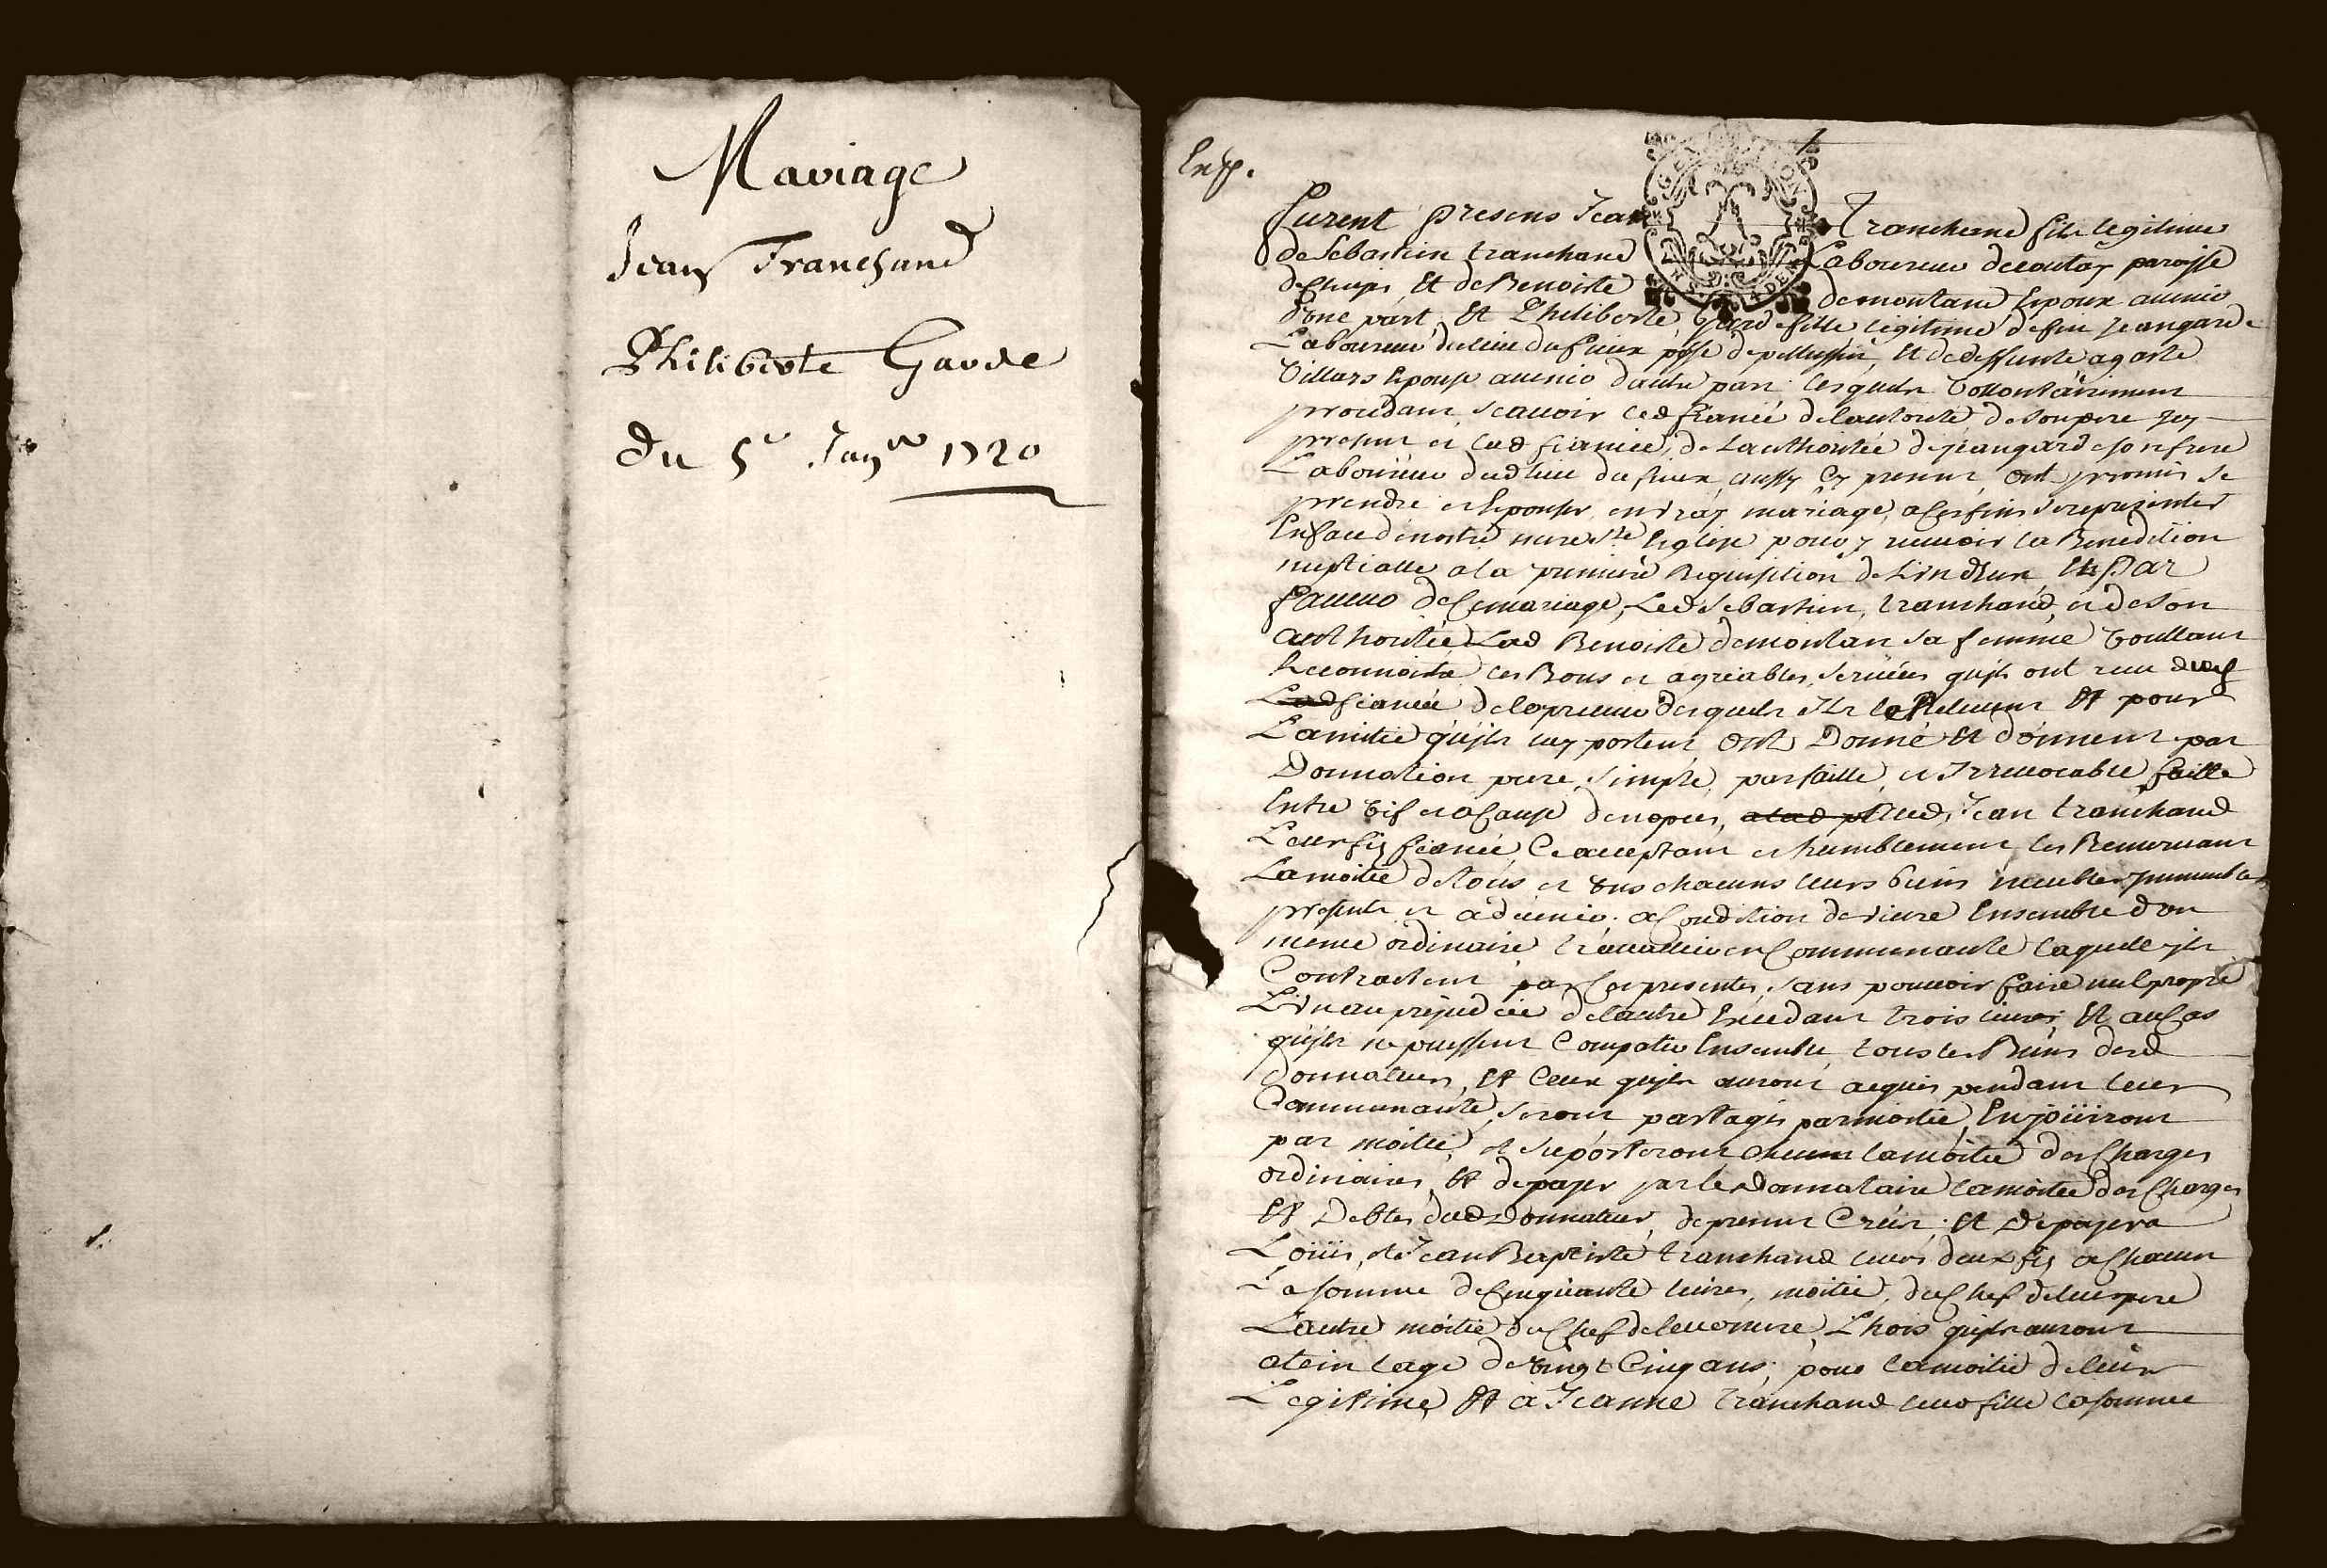 Mariage
Jean Tranchand
Philiberte Garde
du 5e Janer 1720
Exp.
furent presens Jean Tranchand fils legitime
de Sebastien tranchand Laboureur de coutay paroisse
et de Benoiste demontand, Epoux avenir
d'une part, Et Philiberte Garde fille legitime de feu Jean garde
Laboureur du lieu du fueix psse de pellussin, et de deffunte agathe
Villars Epouse avenir dautre part lesquels vollontairement
procedant scavoir led fiancé de lautorité de son pere jcy
present et lad fiancée, de lauthoritée de jean garde son frere
Laboureur dud lieu du fueix aussy cy present, ont promis se
prendre et Epouser en vray mariage, a ces fins se representer
En face de nostre mere ste Eglise pour y recevoir la Benediction
nuptialle a la premiere Requisition de L'un deux, En
faveur de ce mariage, Led Sebastien, tranchand, et de son
authoritée Lad Benoiste demontan sa femme voullant
Reconnoistre les Bons et agreables, services qujls ont receu
fiancée de la preuve desquels jls le Relevent Et pour
Lamitie qujls luy portent ont Donné et donnent par
Donnation pure, simple, parfaitte, et Irrevocable faitte
Entre vif et a Cause de nopces, aud, Jean tranchand
Leur fis fiancé, Ce acceptant et humblement les Remerciant
La moitié de tous et uns chacuns leurs biens meubles jmmeubles
presents et advenir. a Condition de vivre Ensemble d'un
meme ordinaire travallier en Communauté laquelle jls
Contractent par Ces presentes, sans pouvoir faire nul propre
L'un au prejudice de lautre Excedant trois livres, Et au Cas
qujls ne puissent Compatir Ensemble tous les Biens desd
Donnateurs, Et Ceux qujls auront acquis pendant leur
Communauté, seront partagés par moitié, En joüiront
par moitié, et suporteront chacun la moitié des Charges
ordinaires, Et de payer par le Donnataire la moitié des Charges
Et Debtes dud Donnateur, de present Créés; Et de payer a
Loüis, et Jean Baptiste tranchand leurs deux fis a Chacun
La somme de Cinquante livres, moitié, du Chef de leur pere
Lautre moitié du Chef de leur mere, Lhors qujls auront
atein lage de vingt Cinq ans; pour la moitié de leur
Legitime, Et a Jeanne tranchand leur fille la somme